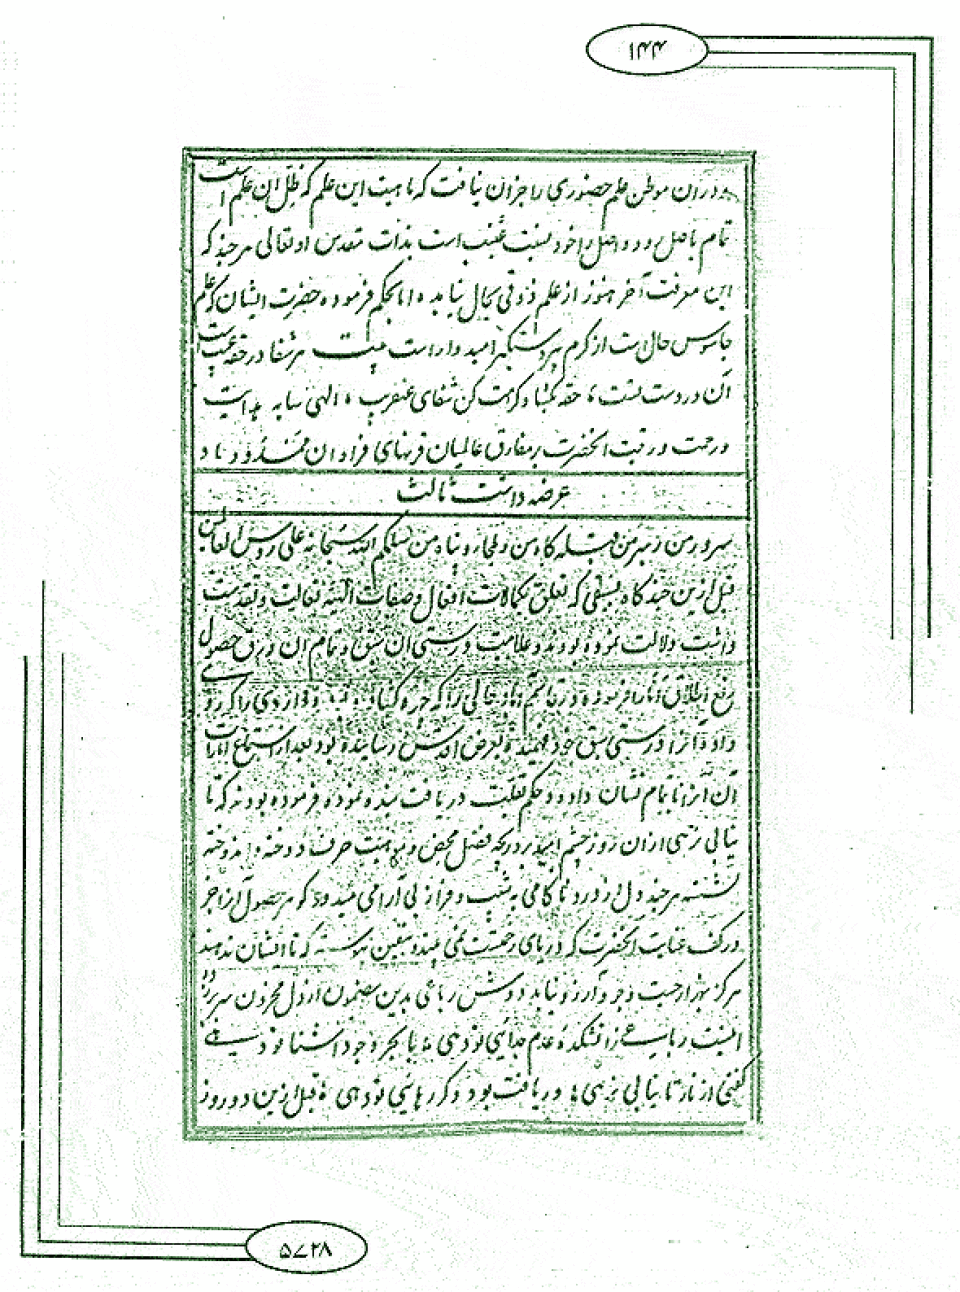 ۱۴۴
در آن موطن علم حضوری را جز آن نیافت که ماهیت این علم که ظل آن علم است
تمام باصل رود و اصل را خود نسبت عینیت است بذات مقدس او تعالی هر چند که
این معرفت آخر هنوز از علم ذوقی بحال نیامده اما بحکم فرموده حضرت ایشان که علم
جاسوس حال است از کرم پیر دستگیر امیدوار است بیت هر شفا در حقه غیب است
آن در دست تست حقه بکشا و کرامت کن شفای عنقریب الهی سایه هدایت
و رحمت و رقبت آنحضرت بر مفارق عالمیان قرنهای فراوان ممدود باد
عرضه داشت ثالث
سرور من رهبر من قبله گاه من و ملجا و پناه من سلمکم الله سبحانه علی رؤس العالمین
قبل ازین چند گاه بسبقی که تعلق بکمالات افعال و صفات الهیه تعالت و تقدست
داشت دلالت نموده بودند و علامت درستی آن سبق و تمام آن ورق حصول
رفع اطلاق فرموده در حالی را که چهره گشاده و واردی را که رو
داده آنرا درستی سبق خود فهمیده بعرض اقدس رسانیده بود بعد از استماع
آن آنرا تمام نشان داده و حکم بقلت دریافت بنده نموده فرموده بودند که تا
نیابی نرهی از آن روز چشم امید بر دریچه فضل محض و موهبت صرف دوخته و
نشسته هر چند دل از درد ناکامی به شیب و فراز بی آرامی میدود که هر حصول آنرا جز
در کف عنایت آنحضرت که دریای رحمت نمی بیند و بیقین پیوسته که تا ایشان ندهند
مرکز بهزار حیث وجود آرزو نیابد دوش رباعی بدین مضمون از دل محزون سر زده
اینست رباعی زاتشکده عدم جدایم تو دهی با بحر وجود آشنا تو دهی
گفتی از ناز تا نیابی نرهی دریافت بود و گر رهایم تو دهی قبل ازین دو روز
۵۷۲۸